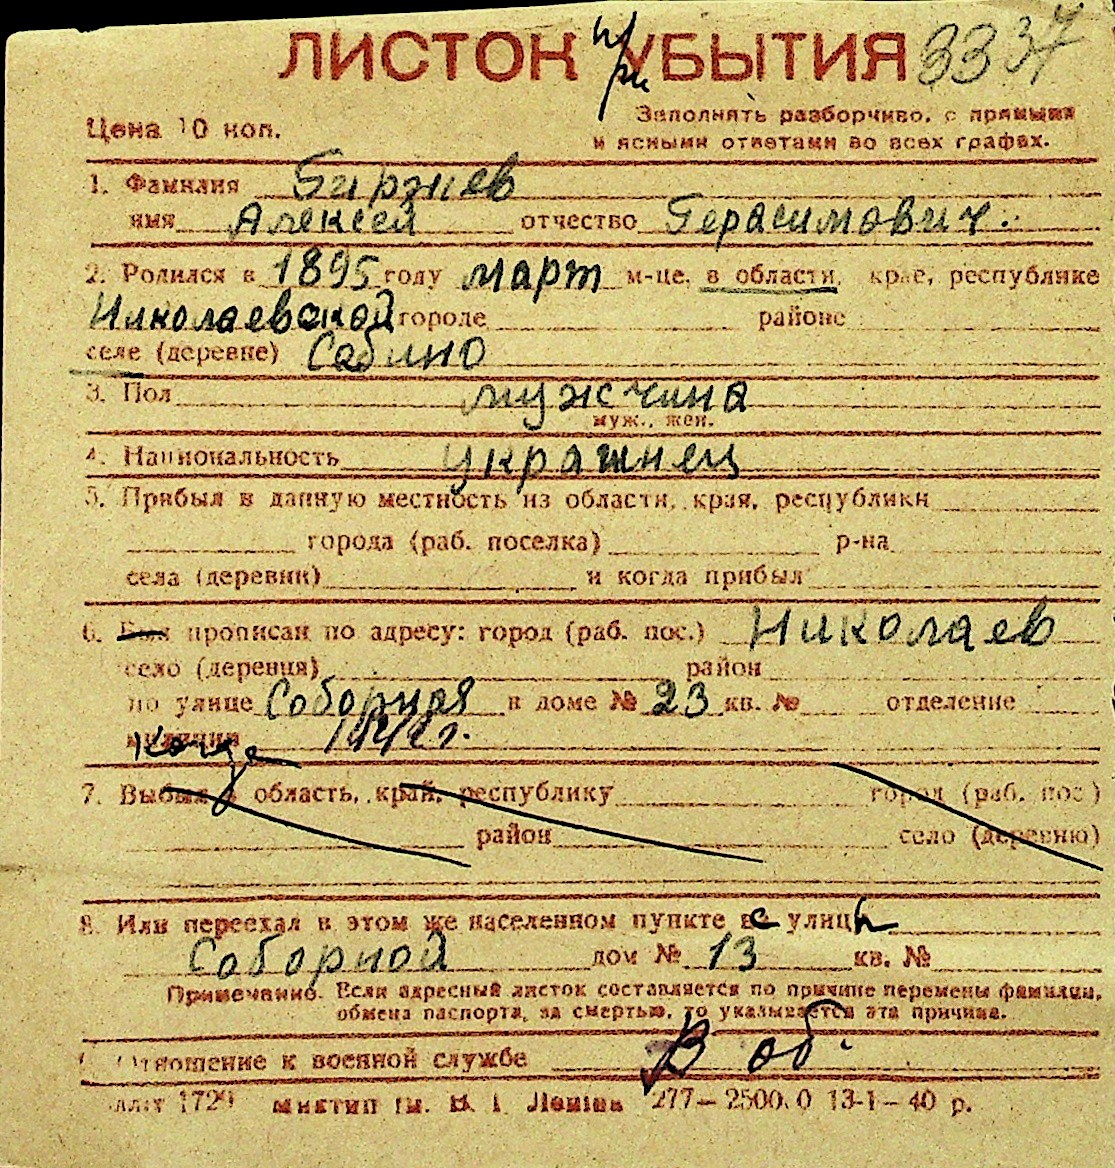 ЛИСТОК УБЫТИЯ
при
3337
Цена 10 коп.
Заполнять разборчиво, с прямыми
и ясными ответами во всех графах.
1. Фамилия Биржев
имя Алексей отчество Герасимович.
2. Родился в 1895 году март м-це, в области, крае, республике
Николаевской городе районе
селе (деревне) Сабино
3. Пол мужчина
муж., жен.
4. Национальность украинец
5. Прибыл в данную местность из области, края, республики
города (раб. поселка) р-на
села (деревни) и когда прибыл
6. Был прописан по адресу: город (раб. пос.) Николаев
село (деревня) район
по улице Соборная в доме № 23 кв. № отделение
милиции
7. Выбыл в область, край, республику город (раб. пос.)
район село (деревню)
8. Или переехал в этом же населенном пункте с улицы
Соборной дом № 13 кв. №
Примечание. Если адресный листок составляется по причине перемены фамилии,
обмена паспорта, за смертью, то указывается эта причина.
Отношение к военной службе В об.
277—2500.0 13-1—40 р.